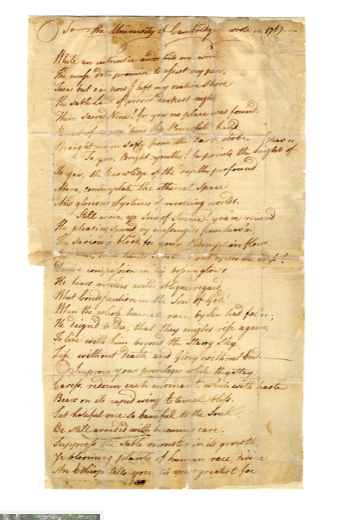 To the University of Cambridge, wrote in 1767
While an intrinsic ardor bids me write
The muse doth promise to assist my pen.
Twas but e'en now I left my native shore
The sable Land of error's darkest night
There, sacred Nine! for you no place was found.
Parent of mercy, 'twas thy Powerful hand
Brought me in safety from the dark abode.
To you, Bright youths! he points the height of Heav'n
To you, the knowledge of the depths profound.
Above, contemplate the ethereal Space
And glorious Systems of revolving worlds.
Still more, ye Sons of Science! you've receiv'd
The pleasing sound by messengers from heav'n,
The Saviour's blood, for your Redemption flows.
upon the
compassion in his bosom glows
He hears revilers with oblique regard.
What Condescention in the Son of God!
When the whole human race, by Sin had fal'n;
He deign'd to Die, that they might rise again,
To live with him beyond the Starry Sky
Life without death, and Glory without End.
Improve your privileges while they Stay:
Caress, redeem each moment, which with haste
Bears on its rapid wing Eternal bliss.
Let hateful vice so baneful to the Soul,
Be still avoided with becoming care;
Suppress the sable monster in its growth,
Ye blooming plants of human race, divine
An Ethiop tells you, tis your greatest foe